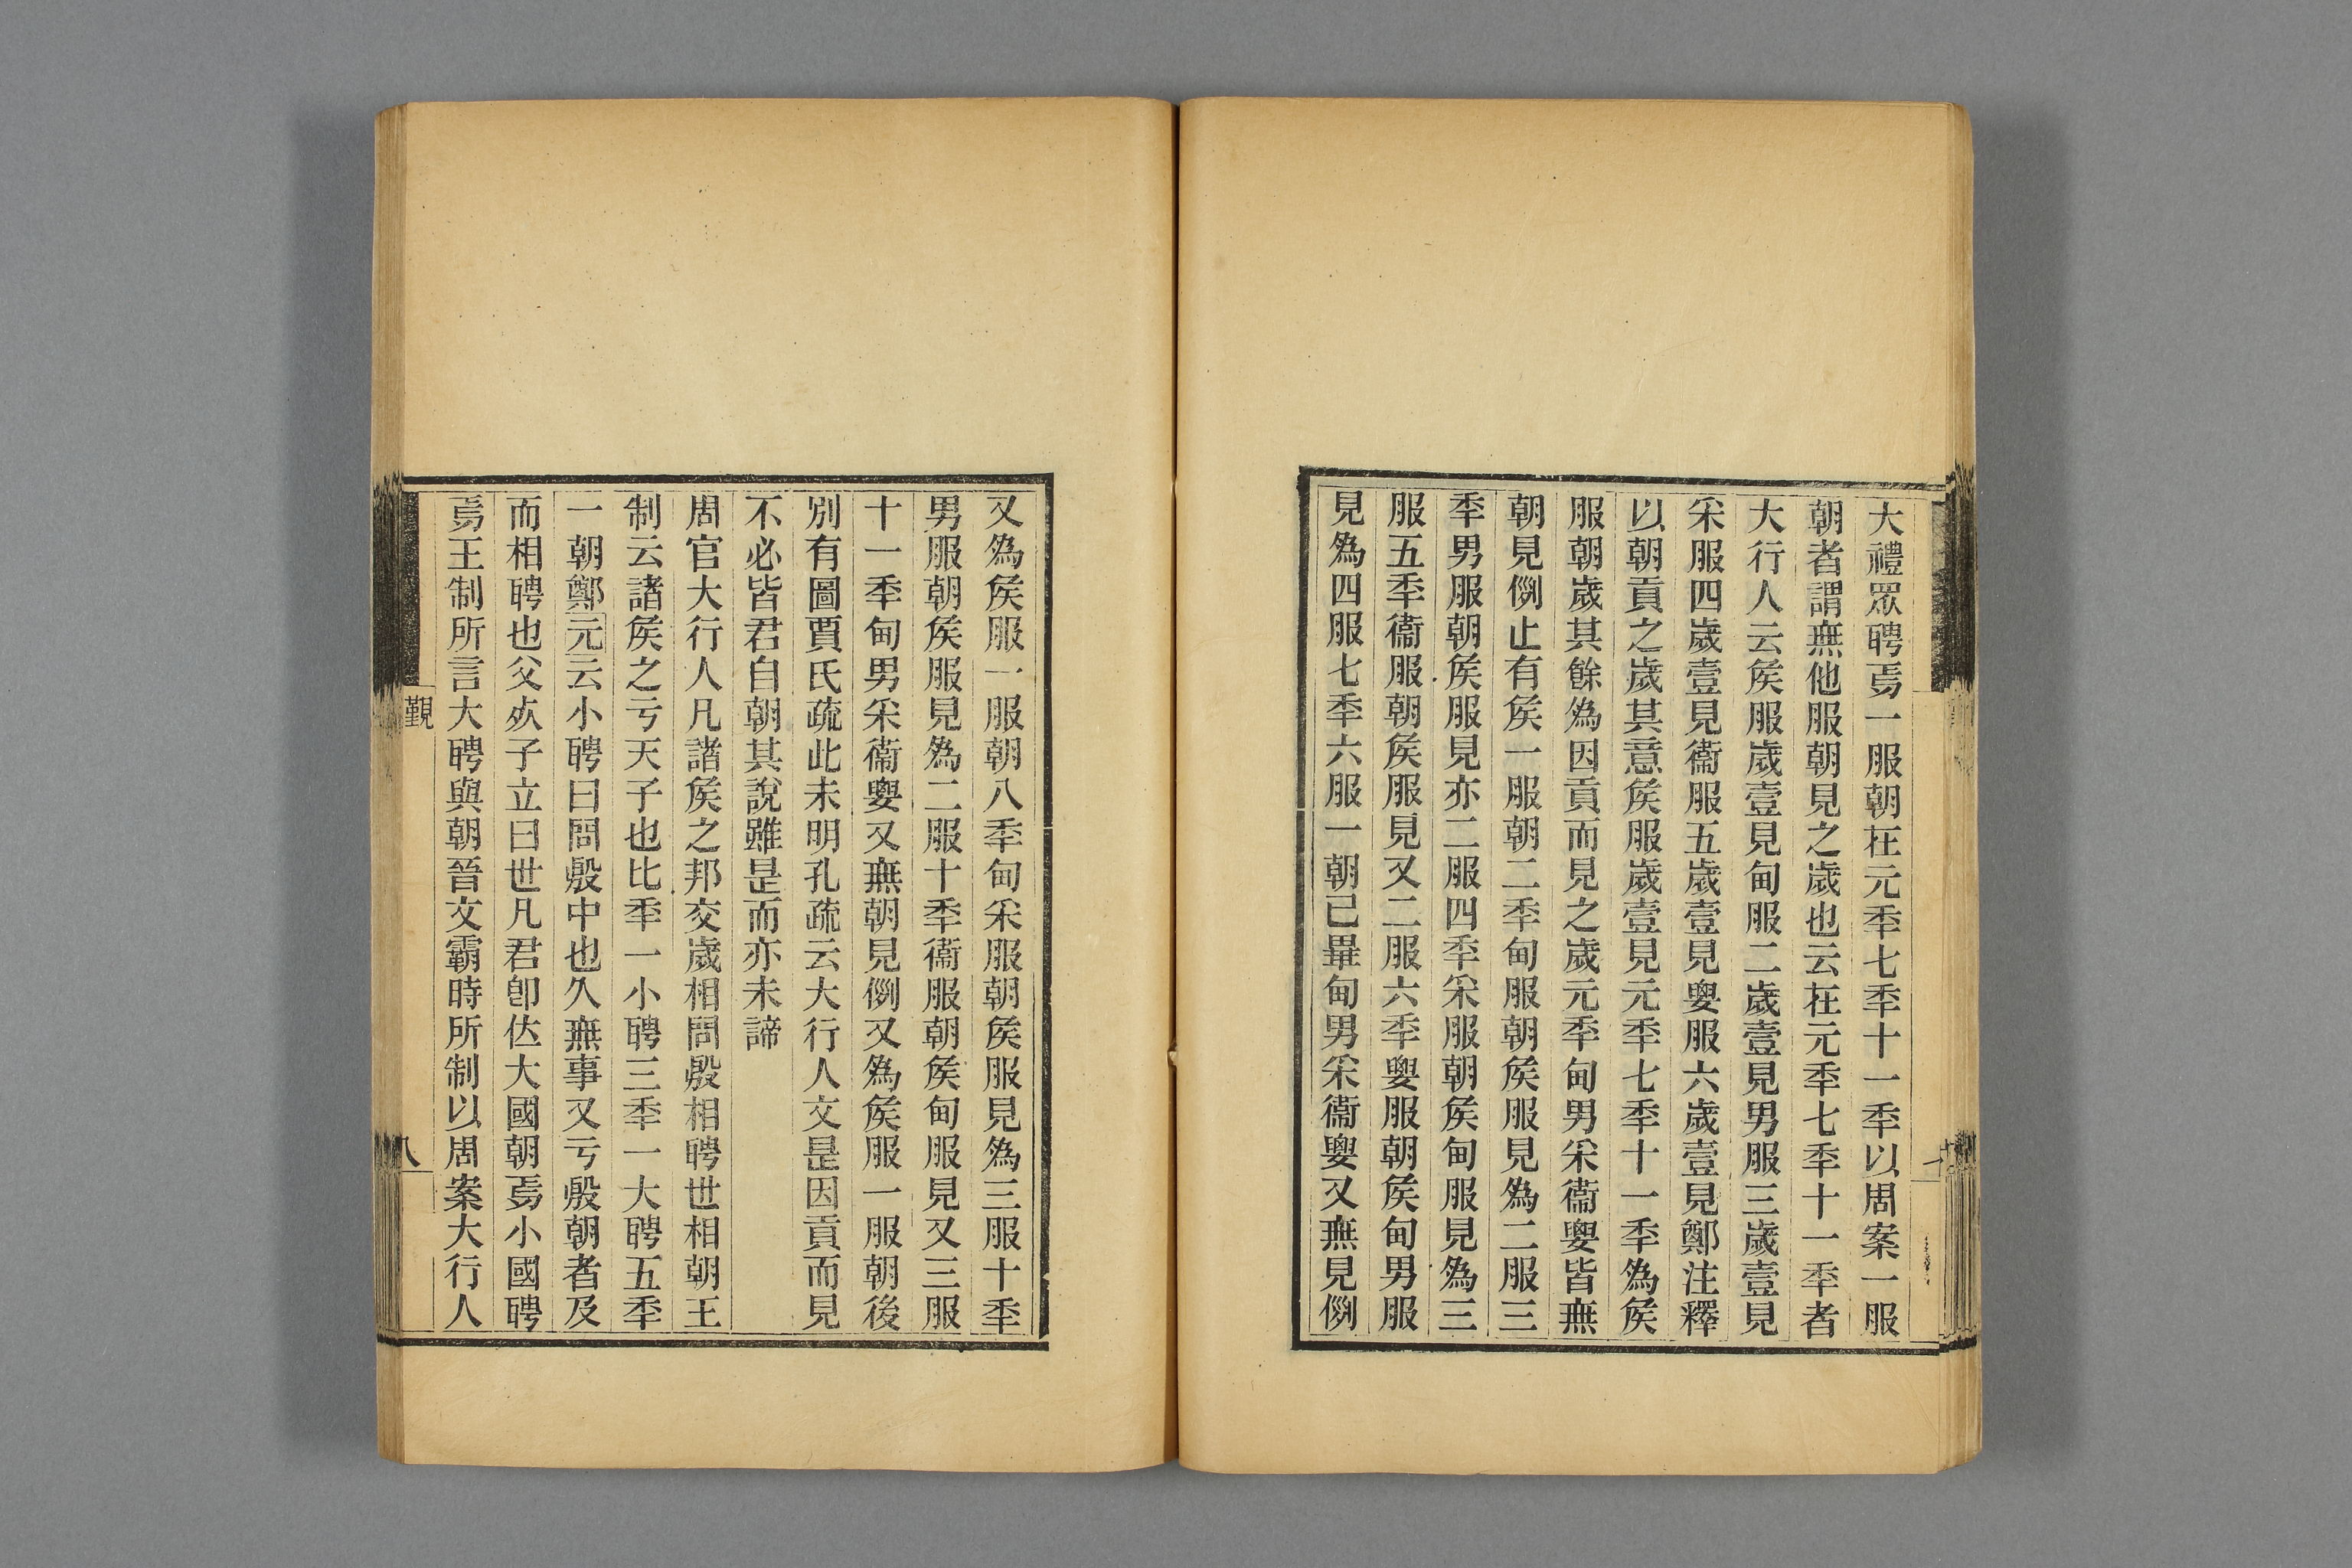 大禮眾聘焉一服朝在元秊七秊十一秊以周案一服
朝者謂無他服朝見之歲也云在元秊七秊十一秊者
大行人云矦服歲壹見甸服二歲壹見男服三歲壹見
采服四歲壹見衞服五歲壹見要服六歲壹見鄭注釋
以朝貢之歲其意矦服歲壹見元秊七秊十一秊為矦
服朝歲其餘為因貢而見之歲元秊甸男采衞要皆無
朝見例止有矦一服朝二秊甸服朝矦服見為二服三
秊男服朝矦服見亦二服四秊采服朝矦甸服見為三
服五秊衞服朝矦服見又二服六秊要服朝矦甸男服
見為四服七秊六服一朝已畢甸男采衞要又無見例
又為矦服一服朝八秊甸采服朝矦服見為三服十秊
男服朝矦服見為二服十秊衞服朝矦甸服見又三服
十一秊甸男采衞要又無朝見例又為矦服一服朝後
別有圖賈氏疏此未明孔疏云大行人文是因貢而見
不必皆君自朝其說雖是而亦未諦
周官大行人凡諸矦之邦交歲相問殷相聘世相朝王
制云諸矦之亏天子也比秊一小聘三秊一大聘五秊
一朝鄭元云小聘曰問殷中也久無事又亏殷朝者及
而相聘也父歾子立曰世凡君卽位大國朝焉小國聘
焉王制所言大聘與朝晉文霸時所制以周案大行人
覲
八